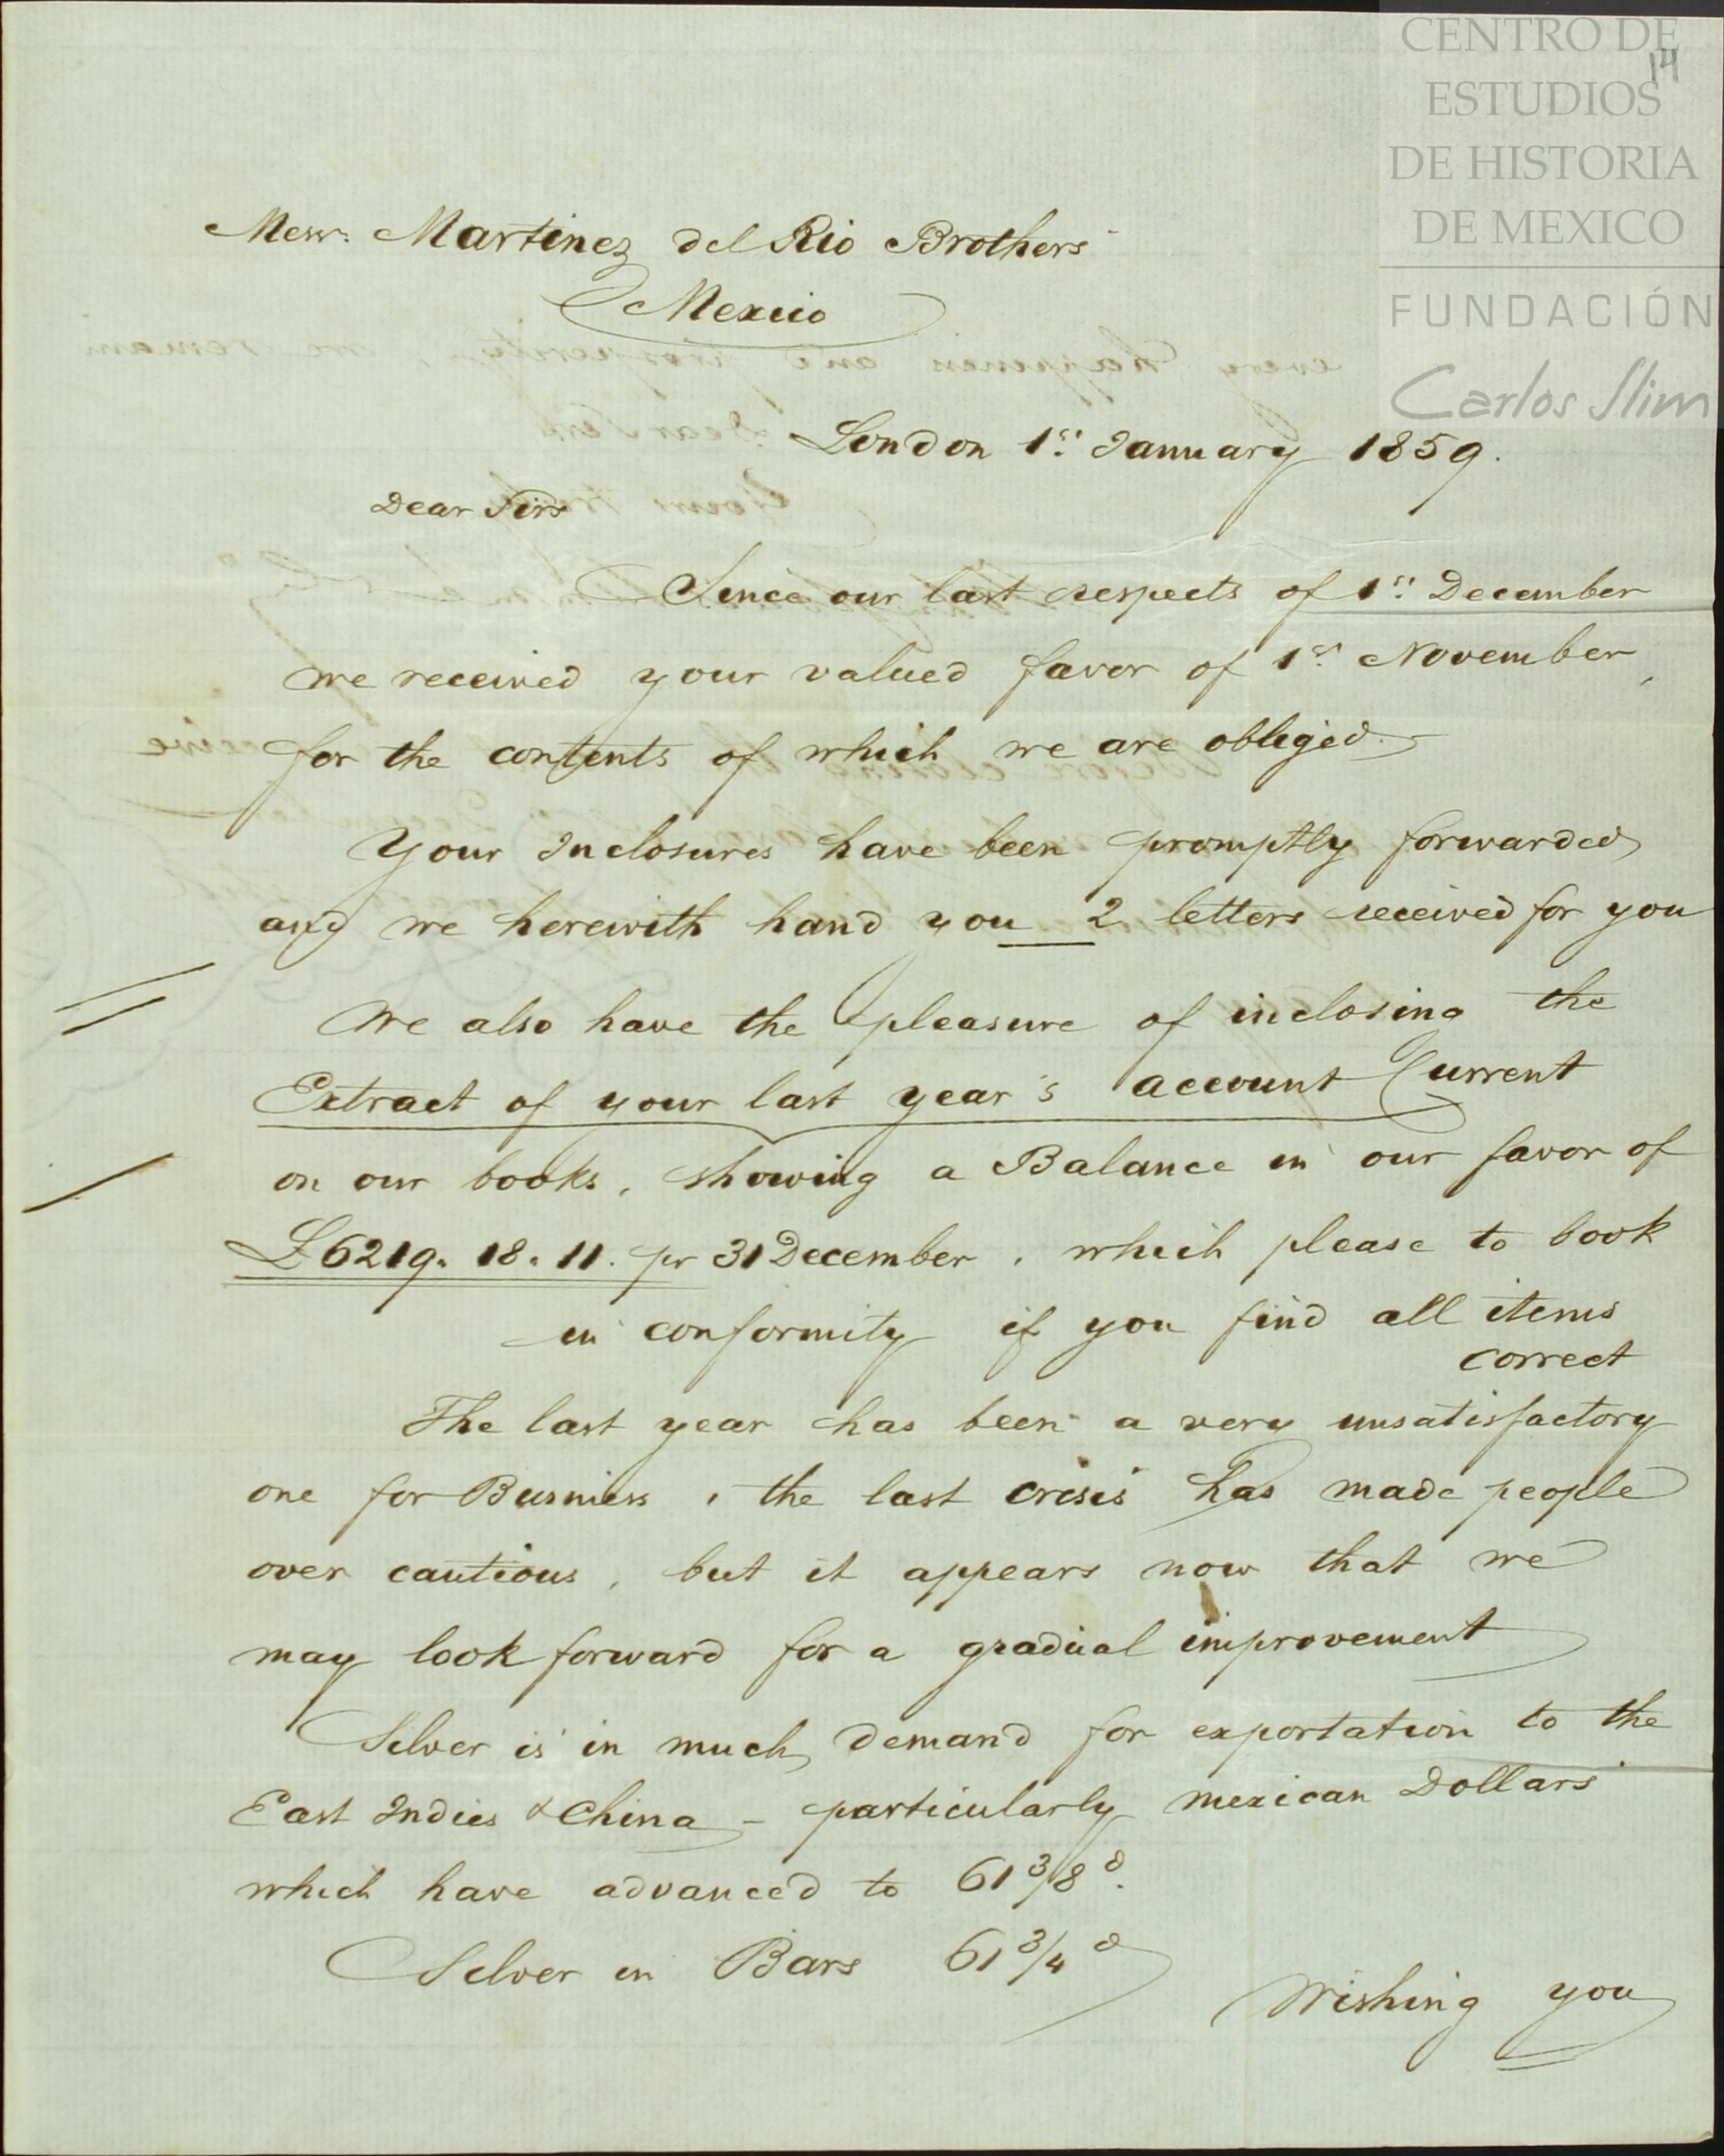 CENTRO DE
ESTUDIOS
DE HISTORIA
DE MEXICO
FUNDACIÓN
Carlos Slim
14
Messrs. Martinez del Rio Brothers
Mexico
London 1st January 1859.
Dear Sirs
Since our last respects of 1st December
we received your valued favor of 1st November,
for the contents of which we are obliged.
Your Inclosures have been promptly forwarded
and we herewith hand you 2 letters received for you
We also have the pleasure of inclosing the
Extract of your last year's account Current
on our books, showing a Balance in our favor of
£6219. 18. 11. pr 31 December, which please to book
in conformity if you find all items
correct
The last year has been a very unsatisfactory
one for Business, the last crisis has made people
over cautious, but it appears now that we
may look forward for a gradual improvement
Silver is in much demand for exportation to the
East Indies & China - particularly mexican Dollars
which have advanced to 61 3/8 d.
Silver in Bars 61 3/4 d
Wishing you